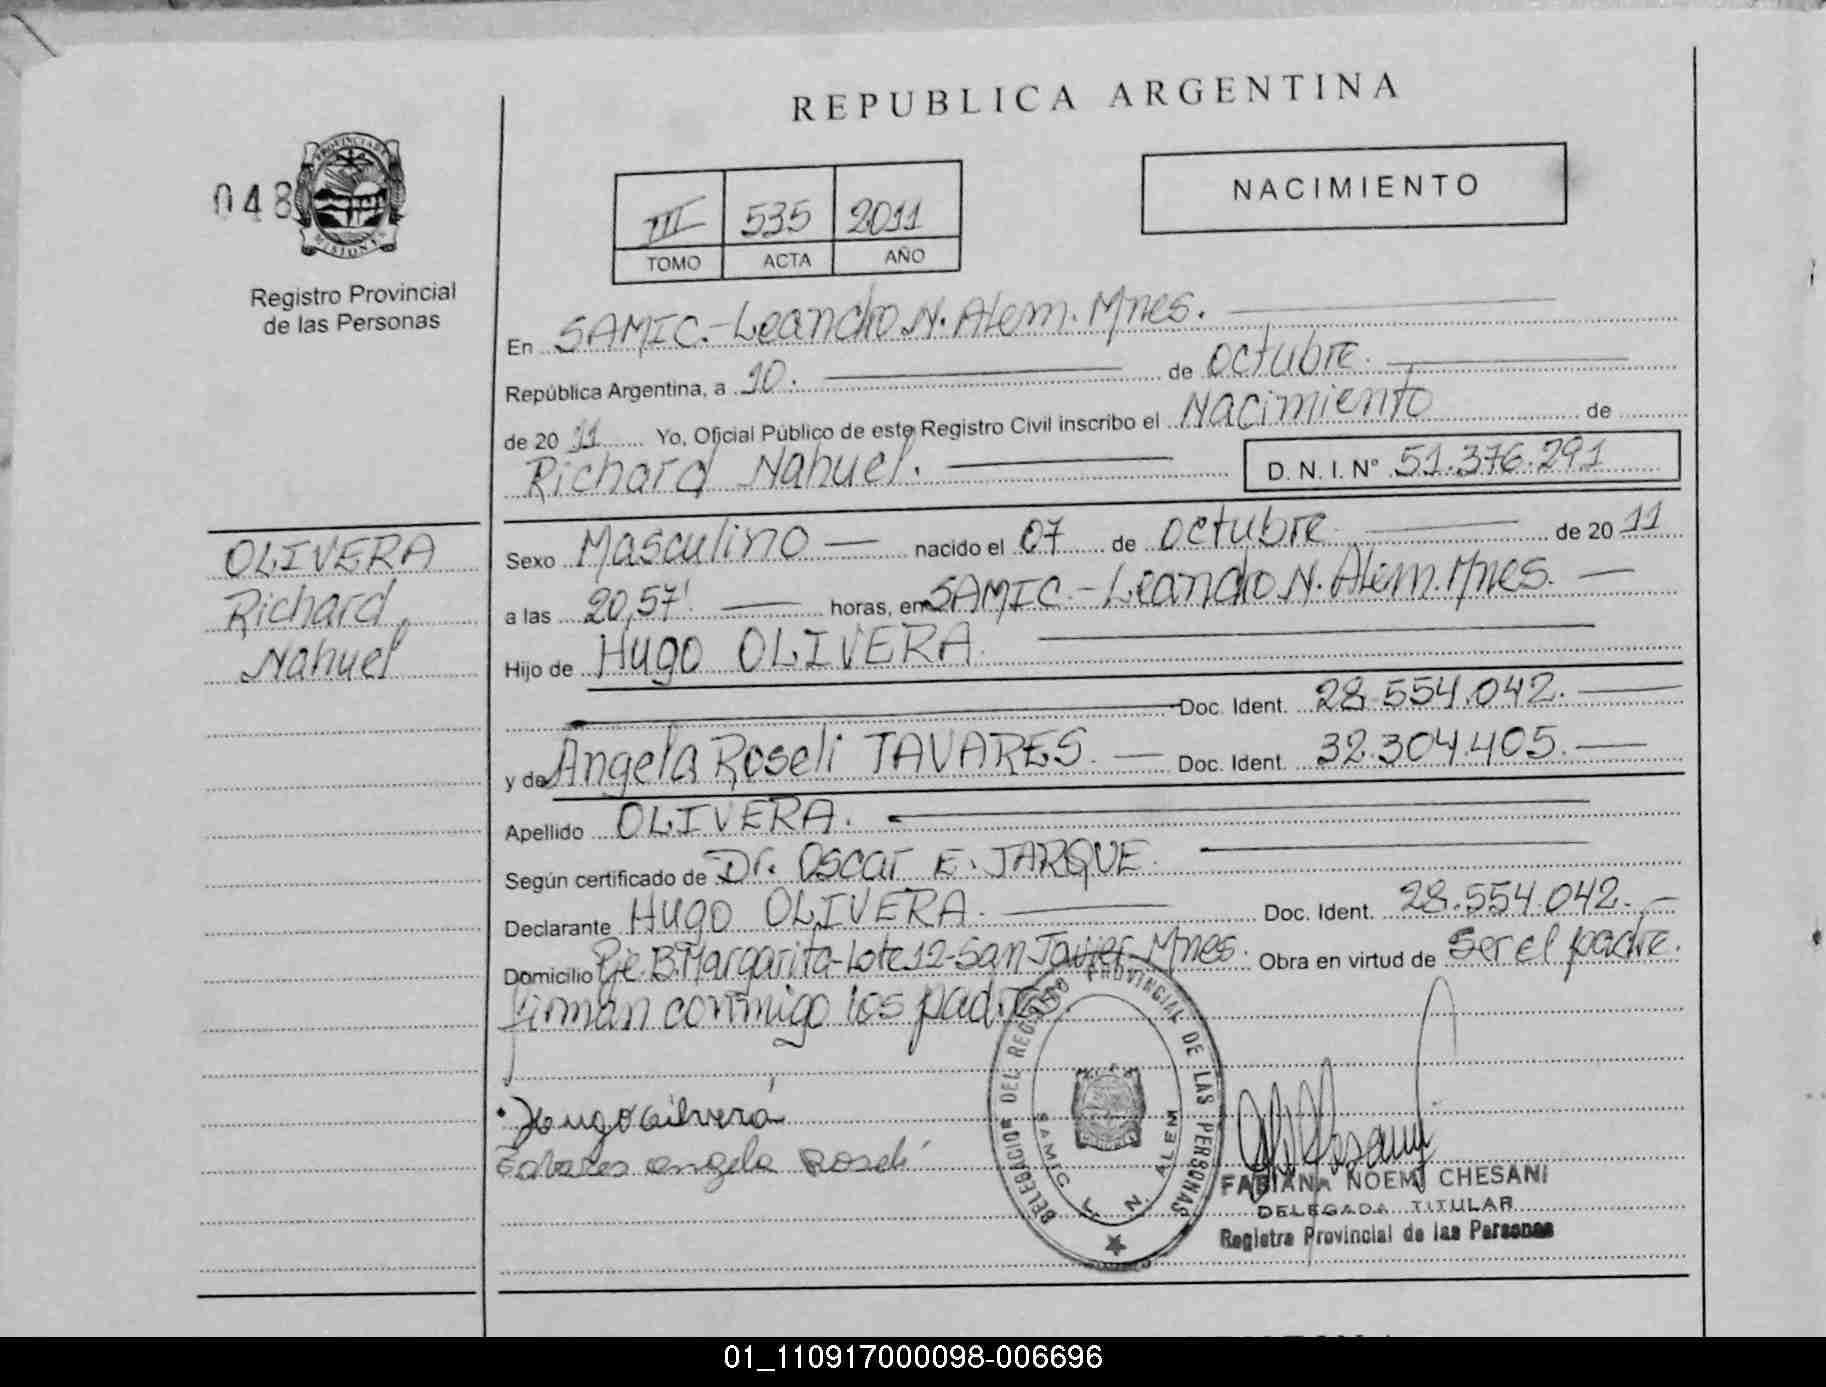 REPUBLICA ARGENTINA
048
PROVINCIA DE
MISIONES
Registro Provincial
de las Personas
III 535 2011
TOMO ACTA AÑO
NACIMIENTO
En SAMIC.-Leandro N. Alem. Mnes.
República Argentina, a 10. de octubre.
de 2011 Yo, Oficial Público de este Registro Civil inscribo el Nacimiento de
Richard Nahuel. D. N. I. N° 51.376.291
OLIVERA
Richard,
Nahuel
Sexo Masculino nacido el 07 de octubre de 2011
a las 20,57' horas, en SAMIC.-Leandro N. Alem. Mnes.
Hijo de Hugo OLIVERA.
Doc. Ident. 28.554.042.
y de Angela Roseli TAVARES. Doc. Ident. 32.304.405.
Apellido OLIVERA.
Según certificado de Dr. Oscar E. JARQUE.
Declarante Hugo OLIVERA. Doc. Ident. 28.554.042.
Domicilio Pje. B. Margarita-Lote 12-San Javier-Mnes. Obra en virtud de Ser el padre.
firman conmigo los padres
Hugo Olivera
Tabares Angela Roseli
DELEGACION DEL REGISTRO PROVINCIAL DE LAS PERSONAS
SAMIC L. N. ALEM
FABIANA NOEMI CHESANI
DELEGADA TITULAR
Registro Provincial de las Personas
01_110917000098-006696